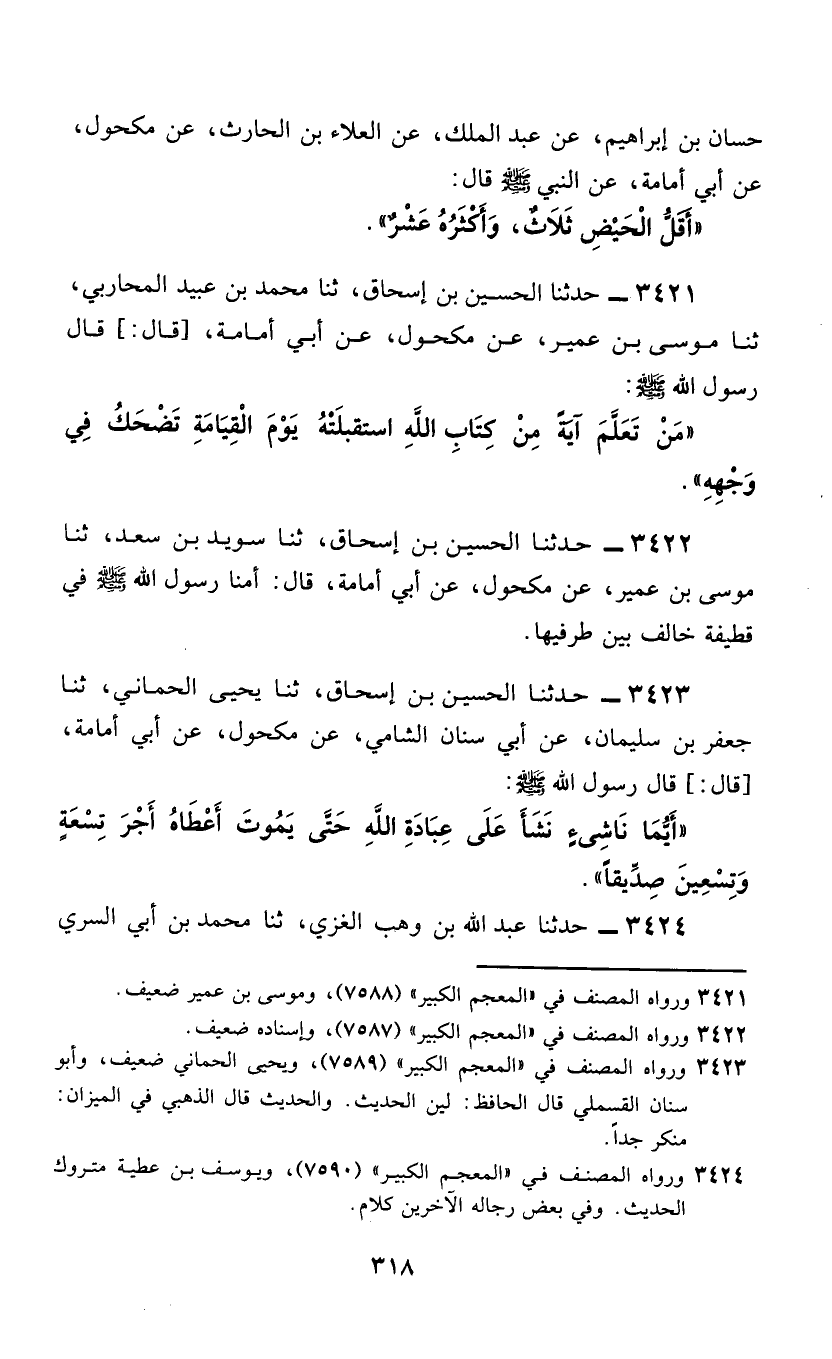 حسان بن إبراهيم، عن عبد الملك، عن العلاء بن الحارث، عن مكحول،
عن أبي أمامة، عن النبي ﷺ قال:
«أَقَلُّ الْحَيْضِ ثَلَاثٌ، وَأَكْثَرُهُ عَشْرٌ».
٣٤٢١ ـ حدثنا الحسين بن إسحاق، ثنا محمد بن عبيد المحاربي،
ثنا موسى بن عمير، عن مكحول، عن أبي أمامة، [قال:] قال
رسول الله ﷺ:
«مَنْ تَعَلَّمَ آيَةً مِنْ كِتَابِ اللَّهِ استقبلَتْهُ يَوْمَ الْقِيَامَةِ تَضْحَكُ فِي
وَجْهِهِ».
٣٤٢٢ ـ حدثنا الحسين بن إسحاق، ثنا سويد بن سعد، ثنا
موسى بن عمير، عن مكحول، عن أبي أمامة، قال: أمنا رسول الله ﷺ في
قطيفة خالف بين طرفيها.
٣٤٢٣ ـ حدثنا الحسين بن إسحاق، ثنا يحيى الحماني، ثنا
جعفر بن سليمان، عن أبي سنان الشامي، عن مكحول، عن أبي أمامة،
[قال:] قال رسول الله ﷺ:
«أَيُّمَا نَاشِىءٍ نَشَأَ عَلَى عِبَادَةِ اللَّهِ حَتَّى يَمُوتَ أَعْطَاهُ أَجْرَ تِسْعَةٍ
وَتِسْعِينَ صِدِّيقاً».
٣٤٢٤ ـ حدثنا عبد الله بن وهب الغزي، ثنا محمد بن أبي السري
٣٤٢١ ورواه المصنف في «المعجم الكبير» (٧٥٨٨)، وموسى بن عمير ضعيف.
٣٤٢٢ ورواه المصنف في «المعجم الكبير» (٧٥٨٧)، وإسناده ضعيف.
٣٤٢٣ ورواه المصنف في «المعجم الكبير» (٧٥٨٩)، ويحيى الحماني ضعيف، وأبو
سنان القسملي قال الحافظ: لين الحديث. والحديث قال الذهبي في الميزان:
منكر جداً.
٣٤٢٤ ورواه المصنف في «المعجم الكبير» (٧٥٩٠)، ويوسف بن عطية متروك
الحديث. وفي بعض رجاله الآخرين كلام.
٣١٨